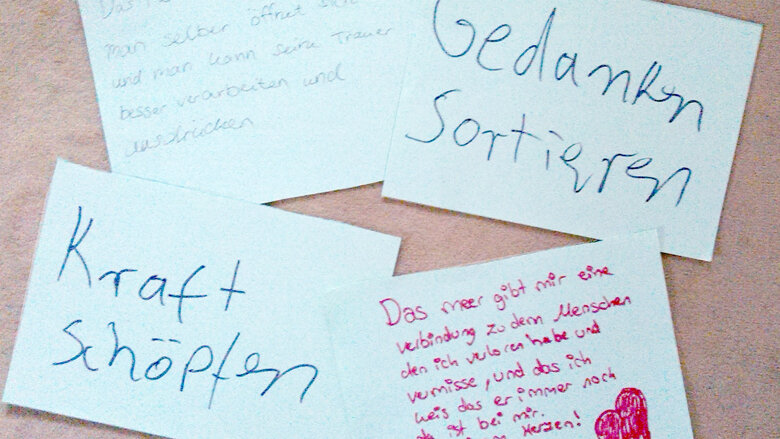 Das
man selber öffnet sich
und man kann seine Trauer
besser verarbeiten und
ausdrücken
Gedanken
Sortieren
Kraft
Schöpfen
Das meer gibt mir eine
verbindung zu dem Menschen
den ich verloren habe und
vermisse, und das ich
weis das er immer noch
da ist bei mir.
Herzen!